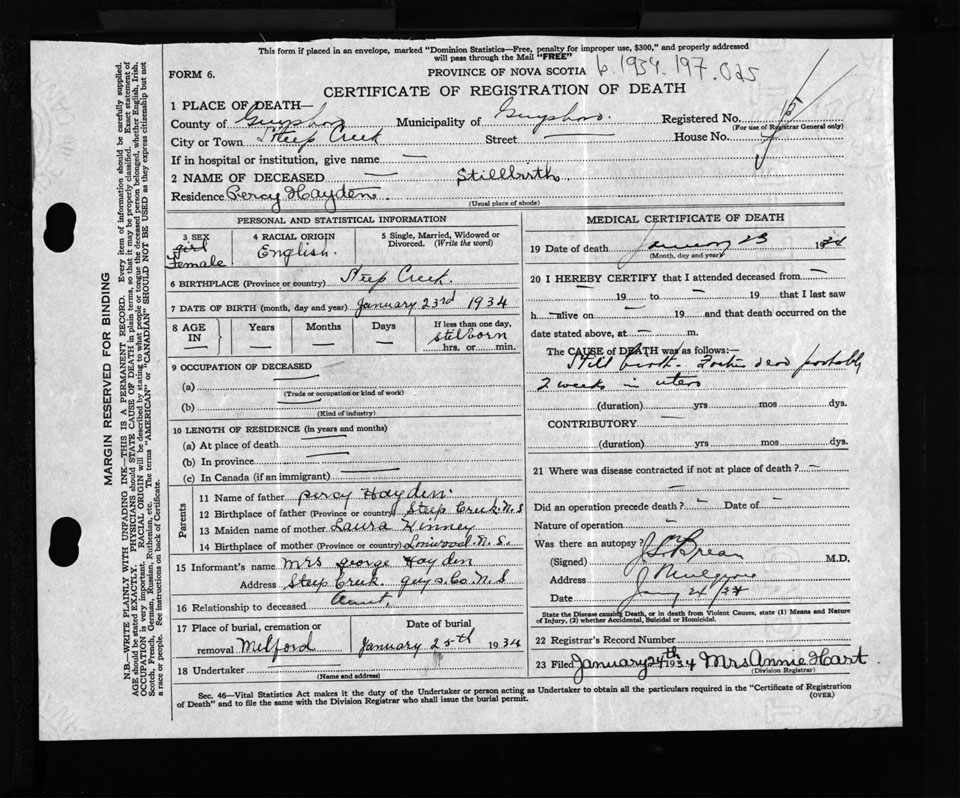 This form if placed in an envelope, marked "Dominion Statistics—Free, penalty for improper use, $300," and properly addressed
will pass through the Mail "FREE"
FORM 6. PROVINCE OF NOVA SCOTIA 6.1934.197.025
CERTIFICATE OF REGISTRATION OF DEATH
1 PLACE OF DEATH—
County of Guysboro Municipality of Guysboro. Registered No.
(For use of Registrar General only)
City or Town Steep Creek Street — House No.
If in hospital or institution, give name —
2 NAME OF DECEASED — Stillbirth
Residence Percy Hayden.
(Usual place of abode)
PERSONAL AND STATISTICAL INFORMATION
3 SEX
girl
Female.
4 RACIAL ORIGIN
English.
5 Single, Married, Widowed or
Divorced. (Write the word)
6 BIRTHPLACE (Province or country) Steep Creek.
7 DATE OF BIRTH (month, day and year) January 23rd 1934
8 AGE
IN
Years
Months
Days
If less than one day,
stelborn
hrs. or min.
9 OCCUPATION OF DECEASED
(a)
(Trade or occupation or kind of work)
(b)
(Kind of industry)
10 LENGTH OF RESIDENCE (in years and months)
(a) At place of death
(b) In province
(c) In Canada (if an immigrant)
Parents
11 Name of father Percy Hayden.
12 Birthplace of father (Province or country) Steep Creek N.S
13 Maiden name of mother Laura Kinney
14 Birthplace of mother (Province or country) Linwood N.S.
15 Informant's name Mrs George Hayden
Address Steep Creek. guys. Co N.S
16 Relationship to deceased Aunt,
17 Place of burial, cremation or
removal Milford
Date of burial
January 25th 1934
18 Undertaker
(Name and address)
MEDICAL CERTIFICATE OF DEATH
19 Date of death January 23 1934
(Month, day and year)
20 I HEREBY CERTIFY that I attended deceased from —
19 to — 19 that I last saw
h — alive on — 19 and that death occurred on the
date stated above, at — m.
The CAUSE of DEATH was as follows:—
Still birth. dead probably
2 weeks in utero
(duration) yrs mos dys.
CONTRIBUTORY
(duration) yrs mos dys.
21 Where was disease contracted if not at place of death? —
Did an operation precede death? — Date of —
Nature of operation —
Was there an autopsy?
(Signed) Brean M.D.
Address Mulgrave
Date Jany 24/34
State the Disease causing Death, or in death from Violent Causes, state (1) Means and Nature
of Injury, (2) whether Accidental, Suicidal or Homicidal.
22 Registrar's Record Number
23 Filed January 24th 1934 Mrs Annie Hart.
(Division Registrar)
Sec. 46—Vital Statistics Act makes it the duty of the Undertaker or person acting as Undertaker to obtain all the particulars required in the "Certificate of Registration
of Death" and to file the same with the Division Registrar who shall issue the burial permit. (OVER)
MARGIN RESERVED FOR BINDING
N.B—WRITE PLAINLY WITH UNFADING INK—THIS IS A PERMANENT RECORD. Every item of information should be carefully supplied.
AGE should be stated EXACTLY. PHYSICIANS should STATE CAUSE OF DEATH in plain terms, so that it may be properly classified. Exact statement of
OCCUPATION is very important. RACIAL ORIGIN will be described by stating to what people or tongue the deceased person belonged, whether English, Irish,
Scotch, French, German, Russian, Ruthenian, etc. The terms "AMERICAN" or "CANADIAN" SHOULD NOT BE USED as they express citizenship but not
a race or people. See instructions on back of Certificate.